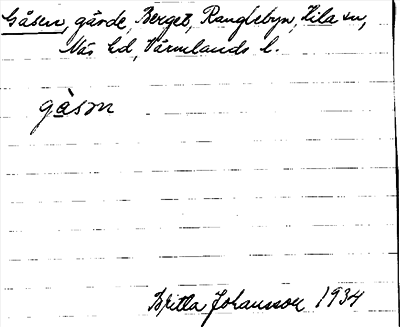 Gåsen, gärde, Berget, Ranglebyn, Kila sn,
Näs hd, Värmlands l.
gàsɷn
Britta Johansson 1934